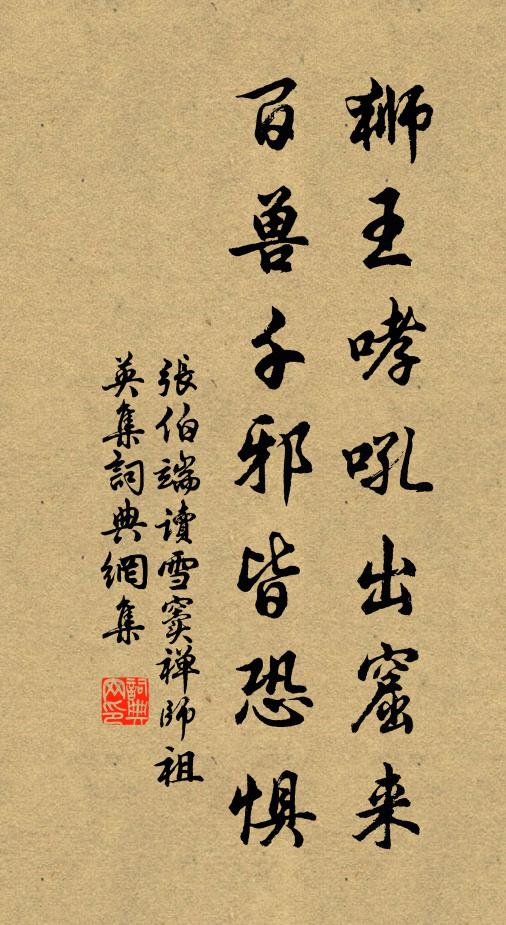 狮王哮吼出窟来
百兽千邪皆恐惧
張伯端读雪窦禅师祖
英集詞典網集
詞典网印